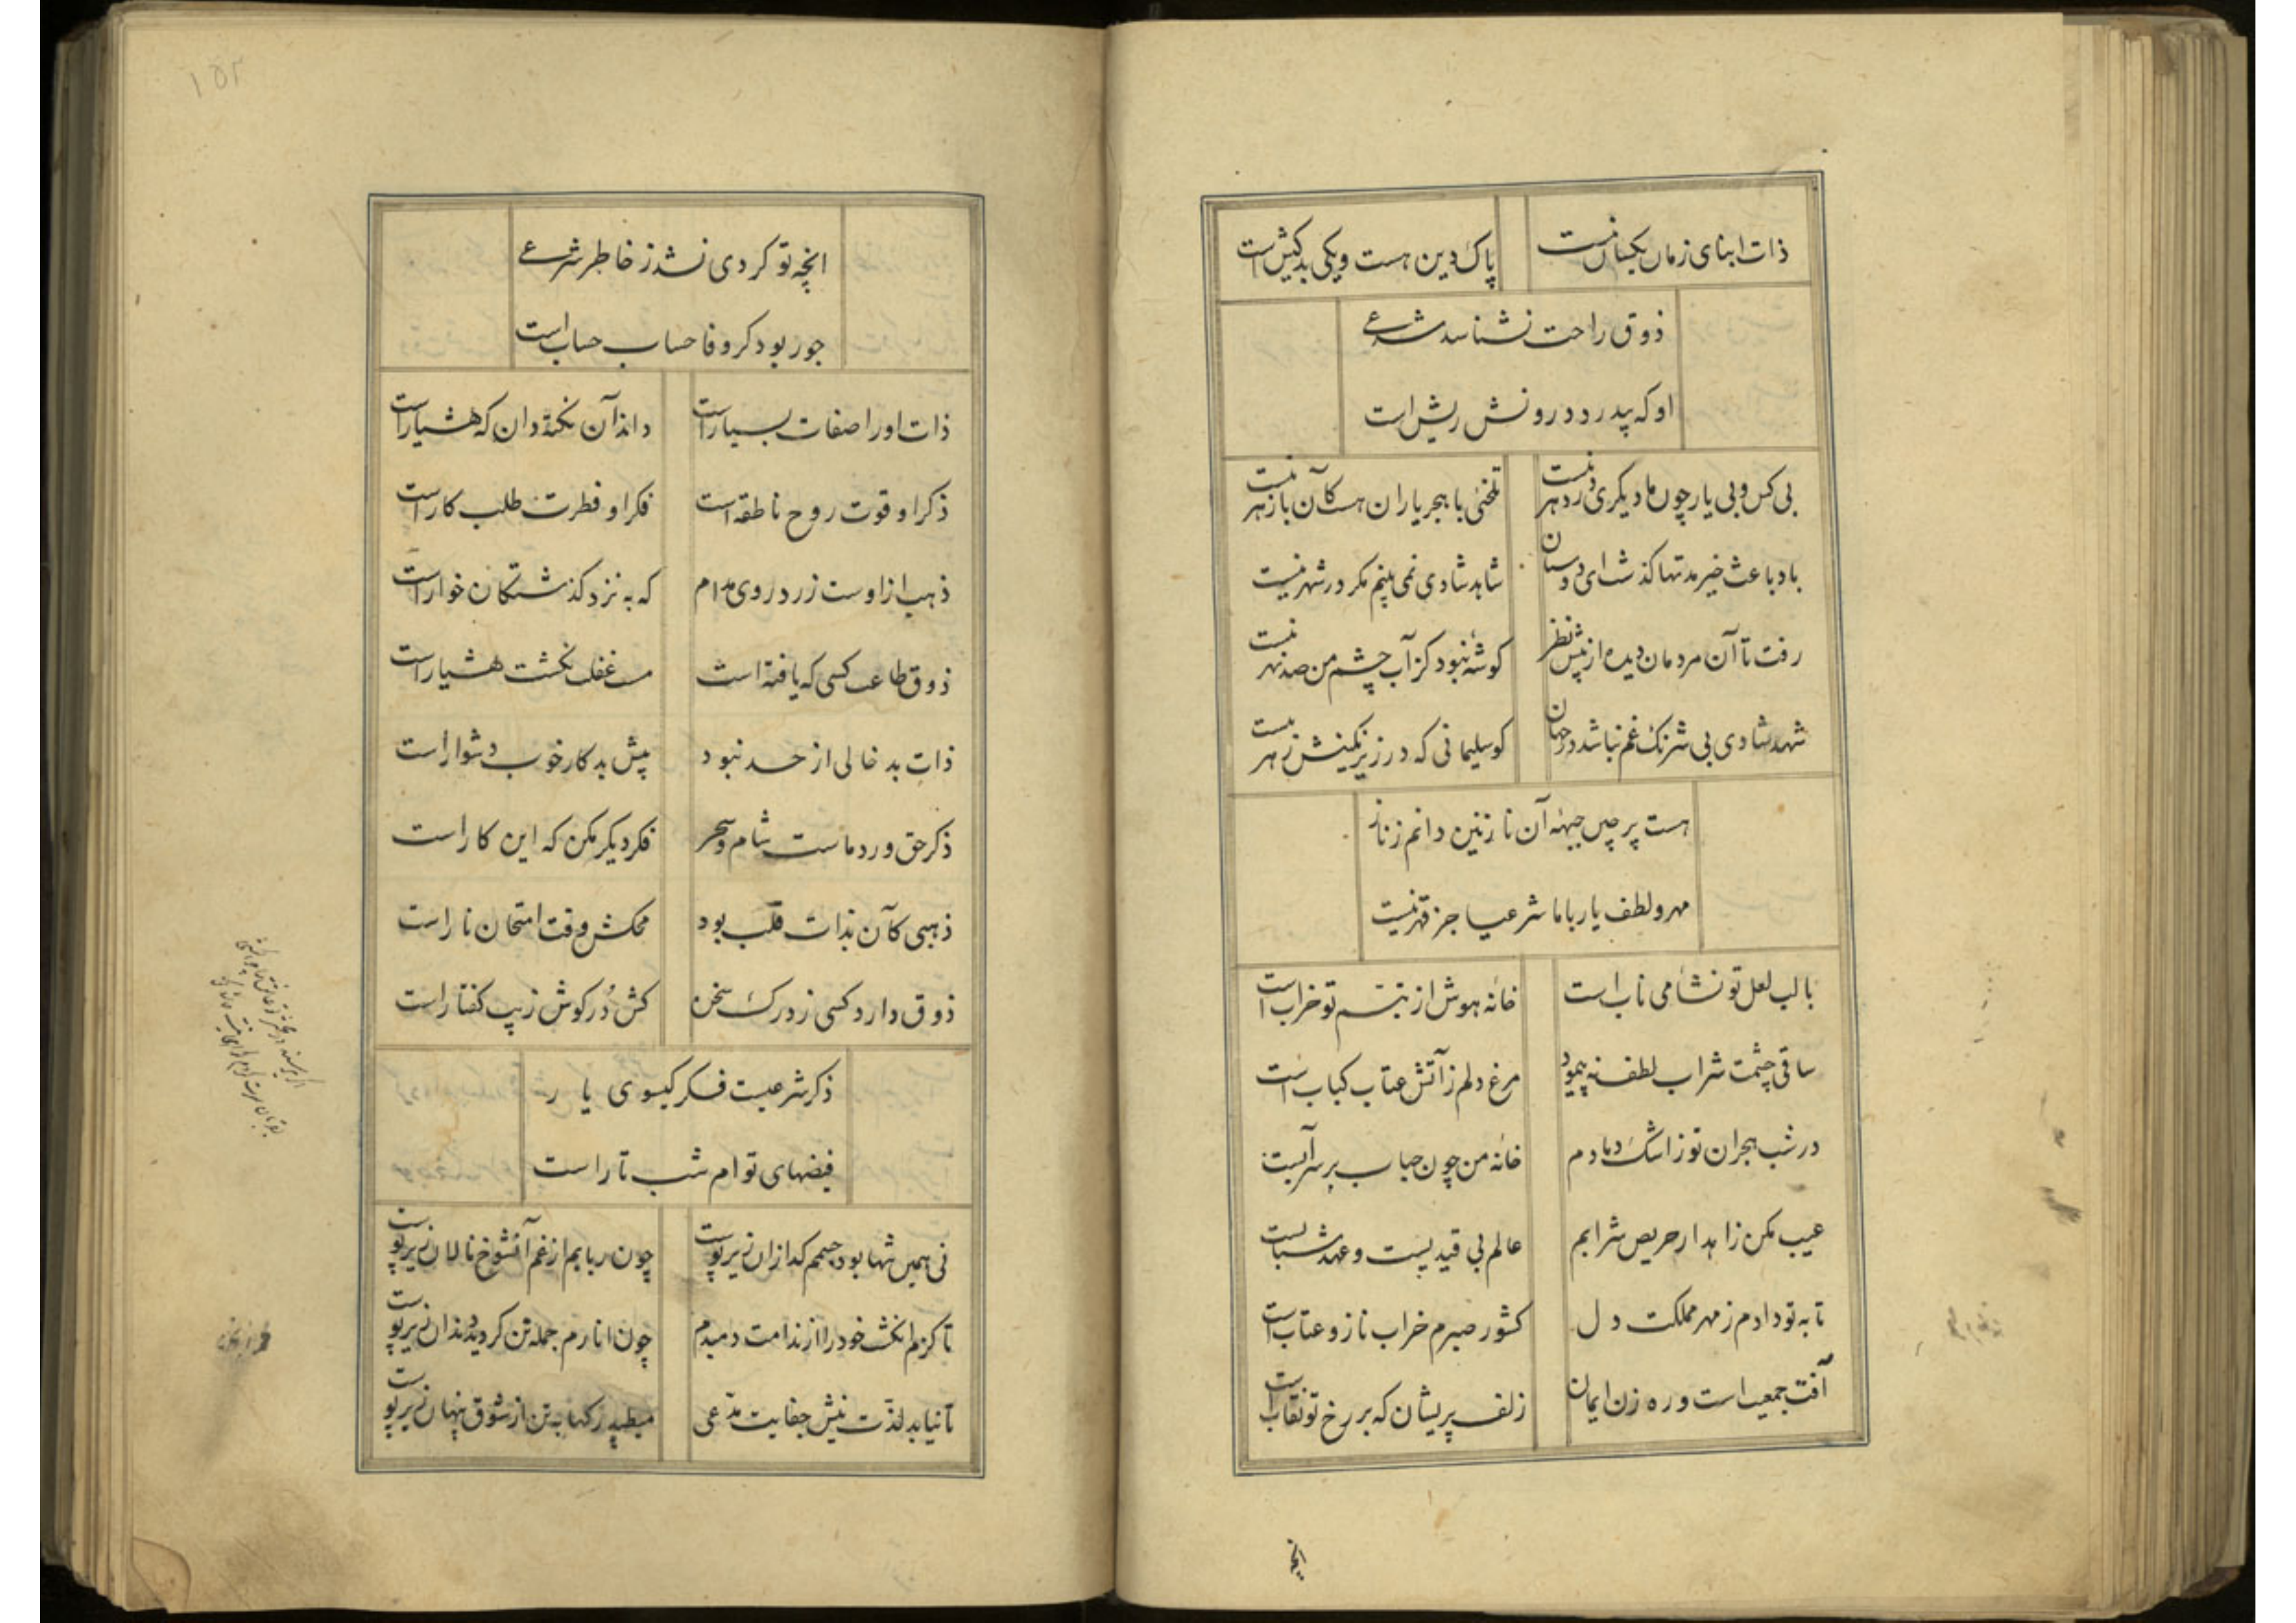 ذات ابنای زمان یکسان نیست
پاک دین هست و یکی بد کیش است
ذوق راحت نشناسد شرعی
او که پیدرد درونش ریش است
بی کس و بی یار چون ما دیگری در دهر نیست
تلخئی با هجر یاران هست کآن با زهر نیست
باد باعث خیر مدتها کذشت ای دوستان
شاهد شادی نمی بینم مکر در شهر نیست
رفت تا آن مردمان دیده از پیش نظر
کوشهٔ نبود کز آب چشم من صد نهر نیست
شهد شادی بی شرنک غم نباشد در جهان
کو سلیمانی که در زیر نکینش زهر نیست
هست پر چین جبهه آن نازنین دانم ز ناز
مهر و لطف یار با ما شرعیا جز قهر نیست
با لب لعل تو نشأ می ناب است
خانه هوش از تبسم تو خراب است
ساقی چشمت شراب لطف نه پیمود
مرغ دلم ز آتش عتاب کباب است
در شب هجران تو ز اشک دمادم
خانه من چون حباب بر سر آبست
عیب مکن زاهد ار حریص شرابم
عالم بی قیدیست و عهد شبابست
تا به تو دادم ز مهر مملکت دل
کشور صبرم خراب ناز و عتاب است
آفت جمعیت است و ره زن ایمان
زلف پریشان که بر رخ تو نقاب است
انچه
۱۵۲
انچه تو کردی نشد ز خاطر شرعی
جور بود کر وفا حساب حساب است
ذات او را صفات بسیار است
داند آن نکته دان که هشیار است
ذکر او قوت روح ناطقه است
فکر او فطرت طلب کار است
ذهب از اوست زرد روی مدام
که به نزد کذشتکان خوار است
ذوق طاعت کسی که یافته است
مست غفلت نکشت هشیار است
ذات بد خالی از حسد نبود
پیش بد کار خوب دشوار است
ذکر حق ورد ماست شام و سحر
فکر دیکر مکن که این کار است
ذهبی کآن بذات قلب بود
محکش وقت امتحان نار است
ذوق دارد کسی ز درک سخن
کش دُر کوش زیب کفتار است
ذکر شرعیست فکر کیسوی یار
فیضهای توام شب تار است
نی همین تنها بود جسمم کدازان زیر پوست
چون ربابم از غم آنشوخ نالان زیر پوست
تا کزم انکشت خود را از ندامت دمبدم
چون انارم جمله تن کردید دندان زیر پوست
تا نیابد لذت نیش جفایت مدعی
میطپد رکها به تن از شوق پنهان زیر پوست